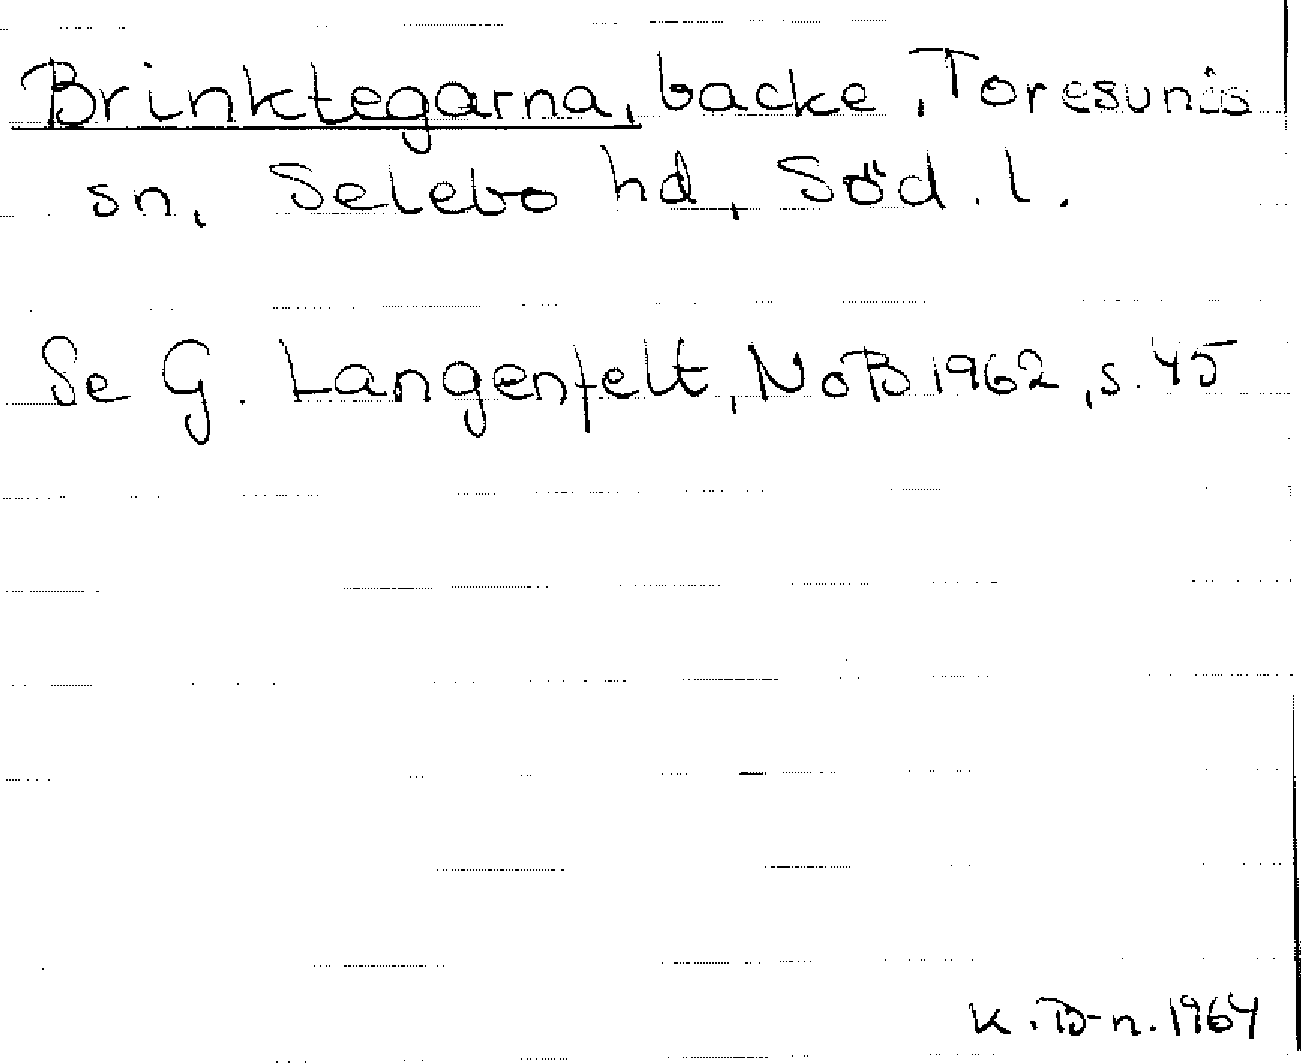 Brinktegarna, backe, Toresunds
sn, Selebo hd, Söd. l.
Se G. Langenfelt, NoB 1962, s. 45
K. D-n. 1964